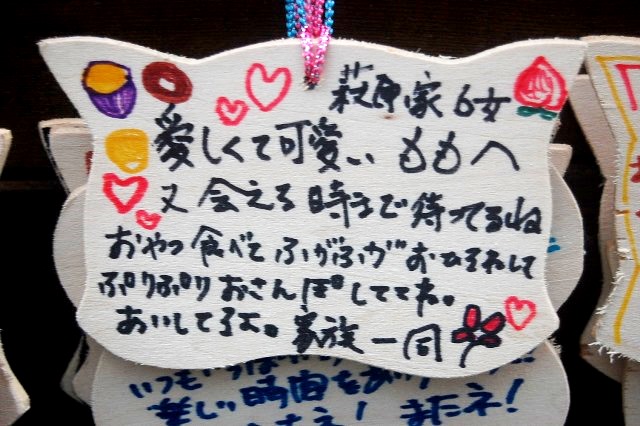 萩原家 6女
愛しくて可愛い ももへ
又 会える 時まで 待ってるね
おやつ食べて ふがふが おひるねして
ぷりぷり おさんぽしててね。
あいしてるよ。家族一同
美しい時間をあり
またネ!